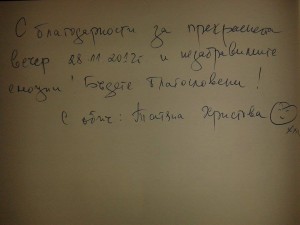 С благодарности за прекрасната
вечер 28.11.2012г и незабравимите
емоции! Бъдете Благословени!
С обич: Христова